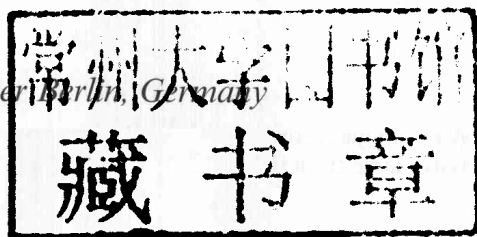 常州大学图书馆
er Berlin, Germany
藏书章